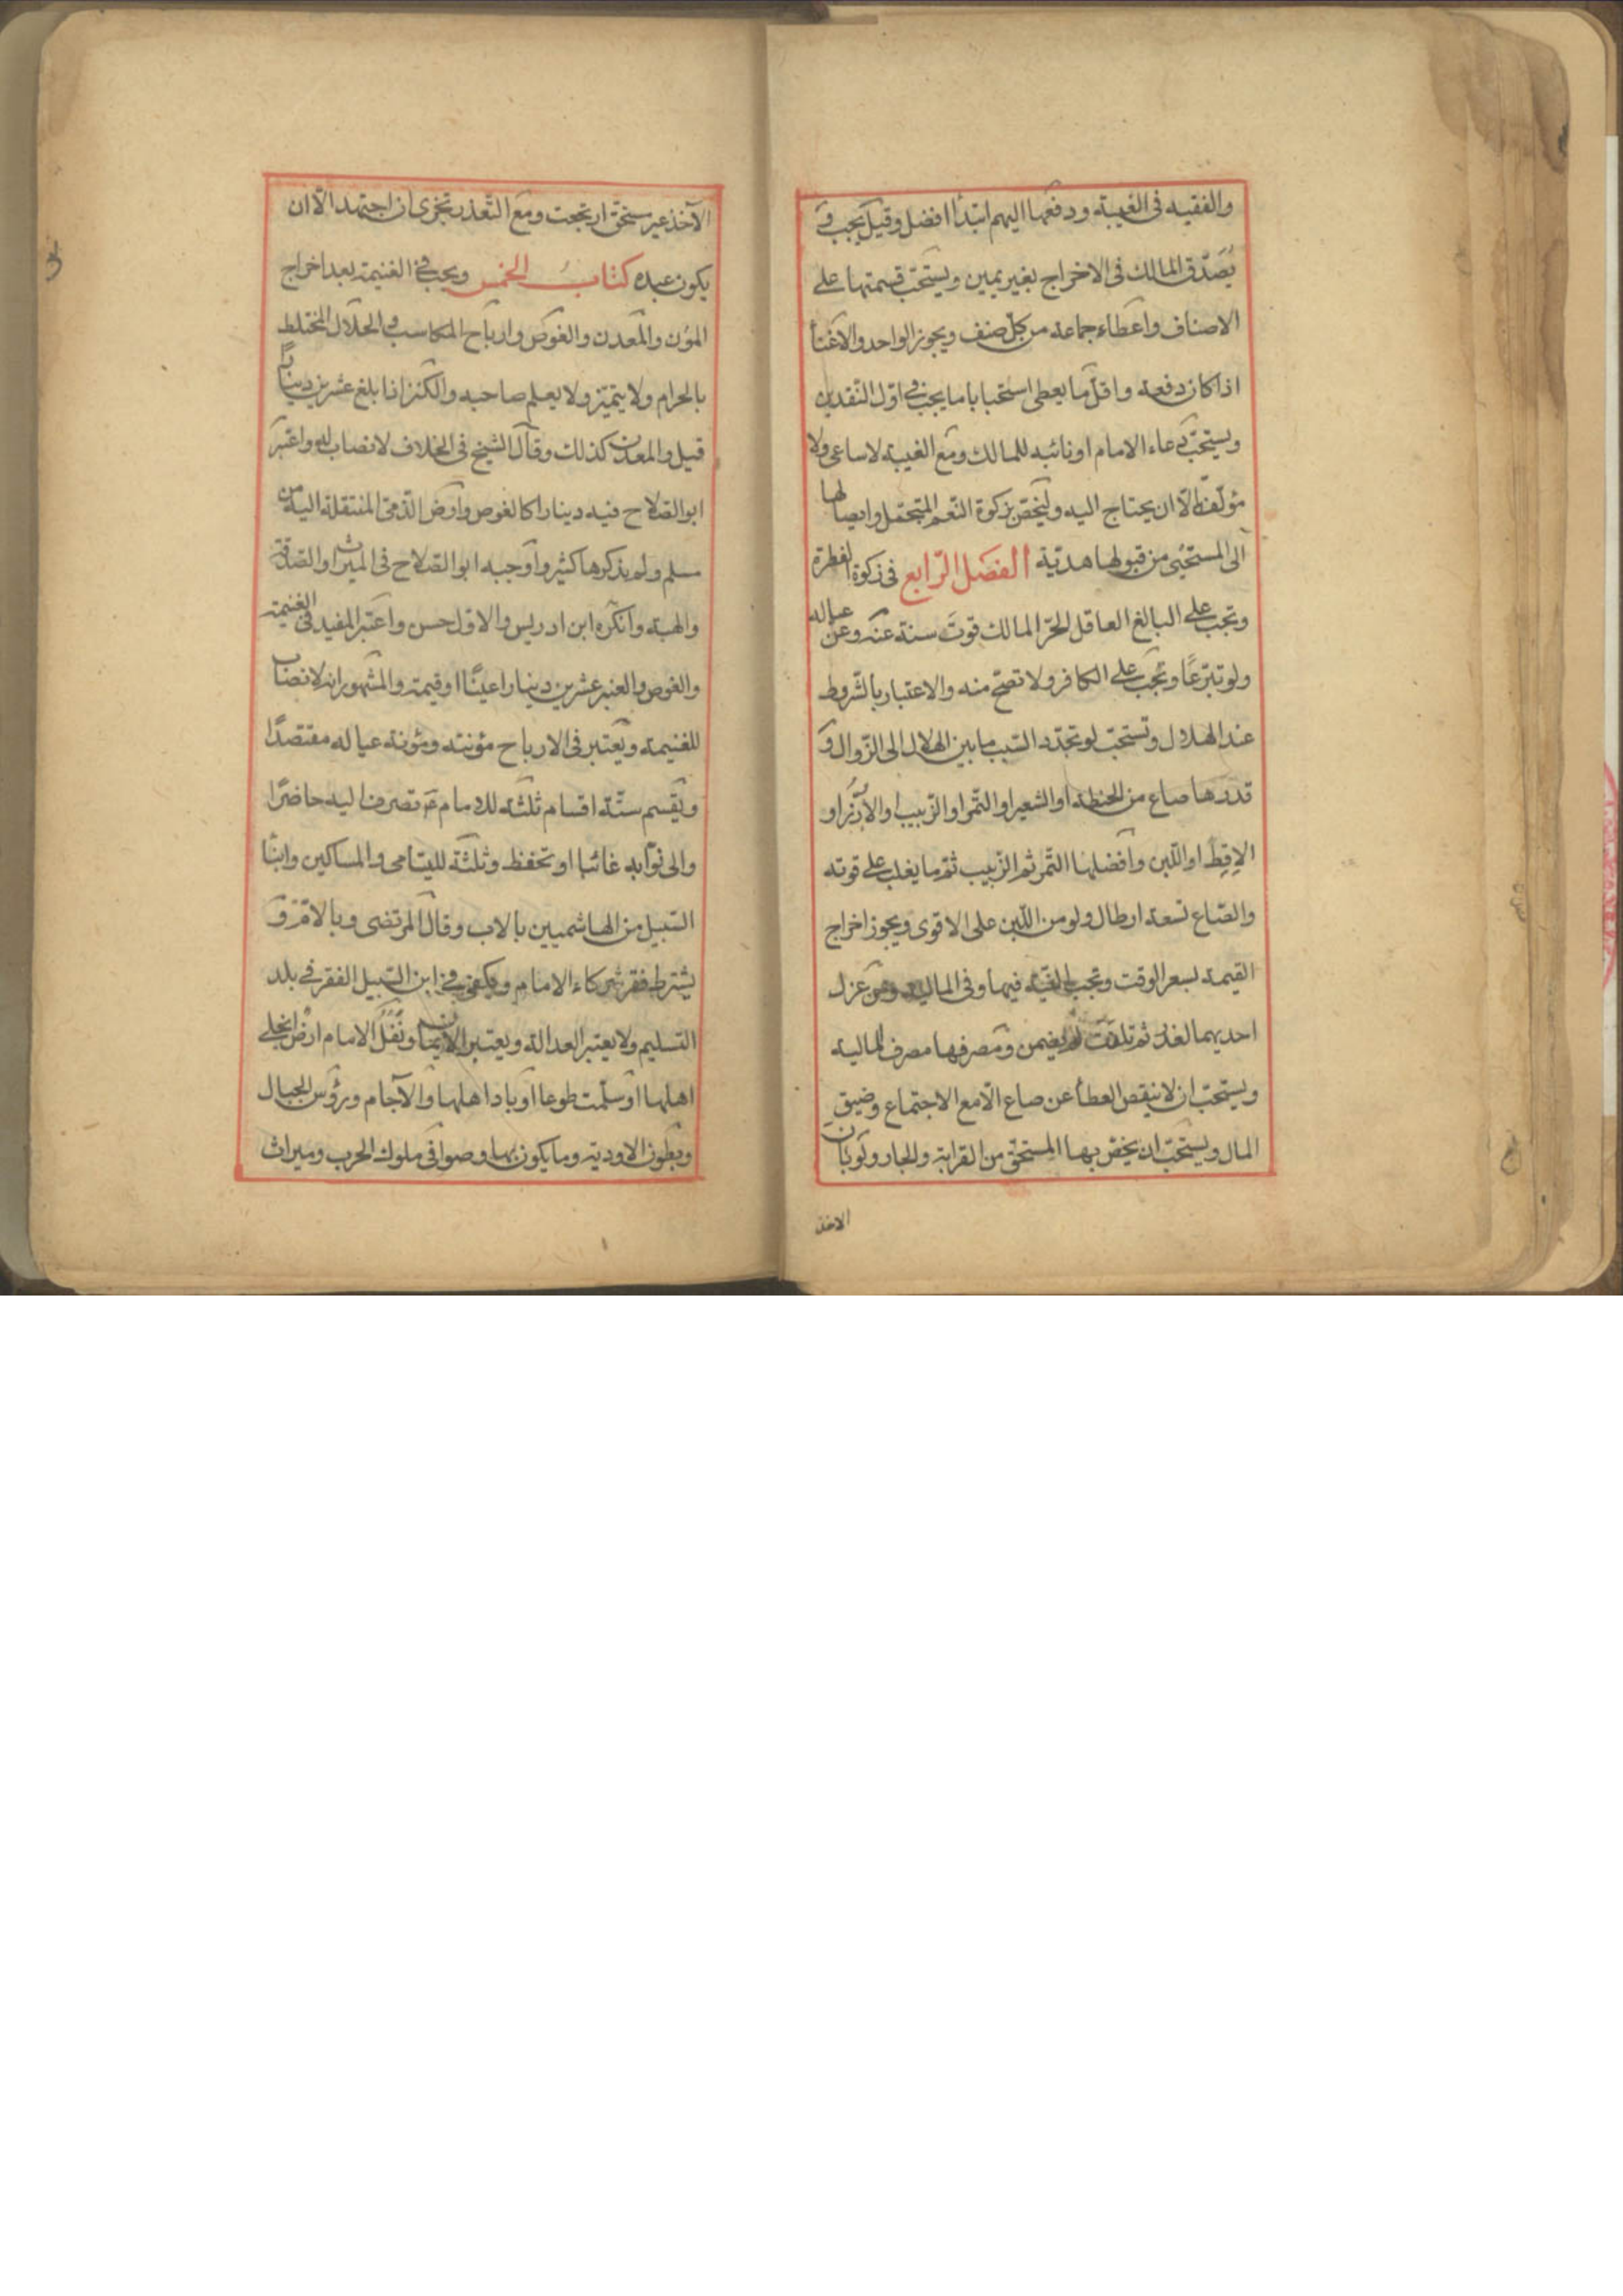 والفقيه فى الغيبة ودفعها اليهم ابتدأ افضل وقيل يجب و
يُصَدّق المالك فى الاخراج بغير يمين ويستحبّ قسمتها على
الاصناف واعطاء جماعة من كلّ صنف ويجوز الواحد والاغنأ
اذا كان دفعة واقل ما يعطى استحبابا ما يجب فى اوّل النّقدين
ويستحبّ دعاء الامام او نائبه للمالك ومع الغيبة لا ساعى ولا
مؤلّفة الّا ان يحتاج اليه وليخصّ بزكوة النّعم المتجمّل وايصالها
الى المستحيى من قبولها هديّة الفصل الرّابع فى زكوة الفطرة
وتجب على البالغ العاقل الحرّ المالك قوت سنة عنه وعن عياله
ولو تبرّعًا وتجب على الكافر ولا تصحّ منه والاعتبار بالشّروط
عند الهلال وتستحبّ لو تجدّد السّبب ما بين الهلال الى الزّوال و
قدرها صاع من الحنطة او الشعير او التّمر او الزّبيب او الأرُز او
الاِقِط او اللّبن وافضلها التّمر ثم الزّبيب ثم ما يغلب على قوته
والصّاع تسعة ارطال ولو من اللّبن على الاقوى ويجوز اخراج
القيمة بسعر الوقت وتجب النّيّة فيها وفى المالية ومن عزل
احديهما لعذر ثم تلفت لم يضمن ومصرفها مصرف المالية
ويستحبّ ان لا ينقص العطأ عن صاع الّا مع الاجتماع وضيق
المال ويستحبّ ان يخصّ بها المستحقّ من القرابة والجار ولو بان
الاخذ
الآخذ غير مستحق ارتجعت ومع التّعذر تجزى ان اجتهد الّا ان
يكون عبده كتابُ الخمس ويجب فى الغنيمة بعد اخراج
المؤن والمعدن والغوص وارباح المكاسب والحلال المختلط
بالحرام ولا يتميّز ولا يعلم صاحبه والكنز اذا بلغ عشرين دينارًا
قيل والمعدن كذلك وقال الشيخ فى الخلاف لا نصاب له واعتبر
ابو الصّلاح فيه دينارا كالغوص وارض الذّمى المنتقلة اليه من
مسلم ولم يذكرها كثير واوجبه ابو الصّلاح فى الميراث والصّدقة
والهبة وانكره ابن ادريس والاول حسن واعتبر المفيد فى الغنيمة
والغوص والعنبر عشرين دينارا عينًا او قيمة والمشهور انه لا نصاب
للغنيمة ويعتبر فى الارباح مؤنته ومؤنة عياله مقتصدًا
ويقسم ستّة اقسام ثلثة للامام عَ تصرف اليه حاضرًا
والى نوّابه غائبا او تحفظ وثلثة لليتامى والمساكين وابنأ
السّبيل من الهاشميين بالاب وقال المرتضى وبالام و
يشترط فقر شركاء الامام ويكفى فى ابن السّبيل الفقر فى بلد
التسليم ولا يعتبر العدالة ويعتبر الايمان ونَفَلُ الامام ارض انجلى
اهلها او سلّمت طوعا او باد اهلها والآجام ورؤس الجبال
وبطون الاودية وما يكون بها وصوافى ملوك الحرب وميراث